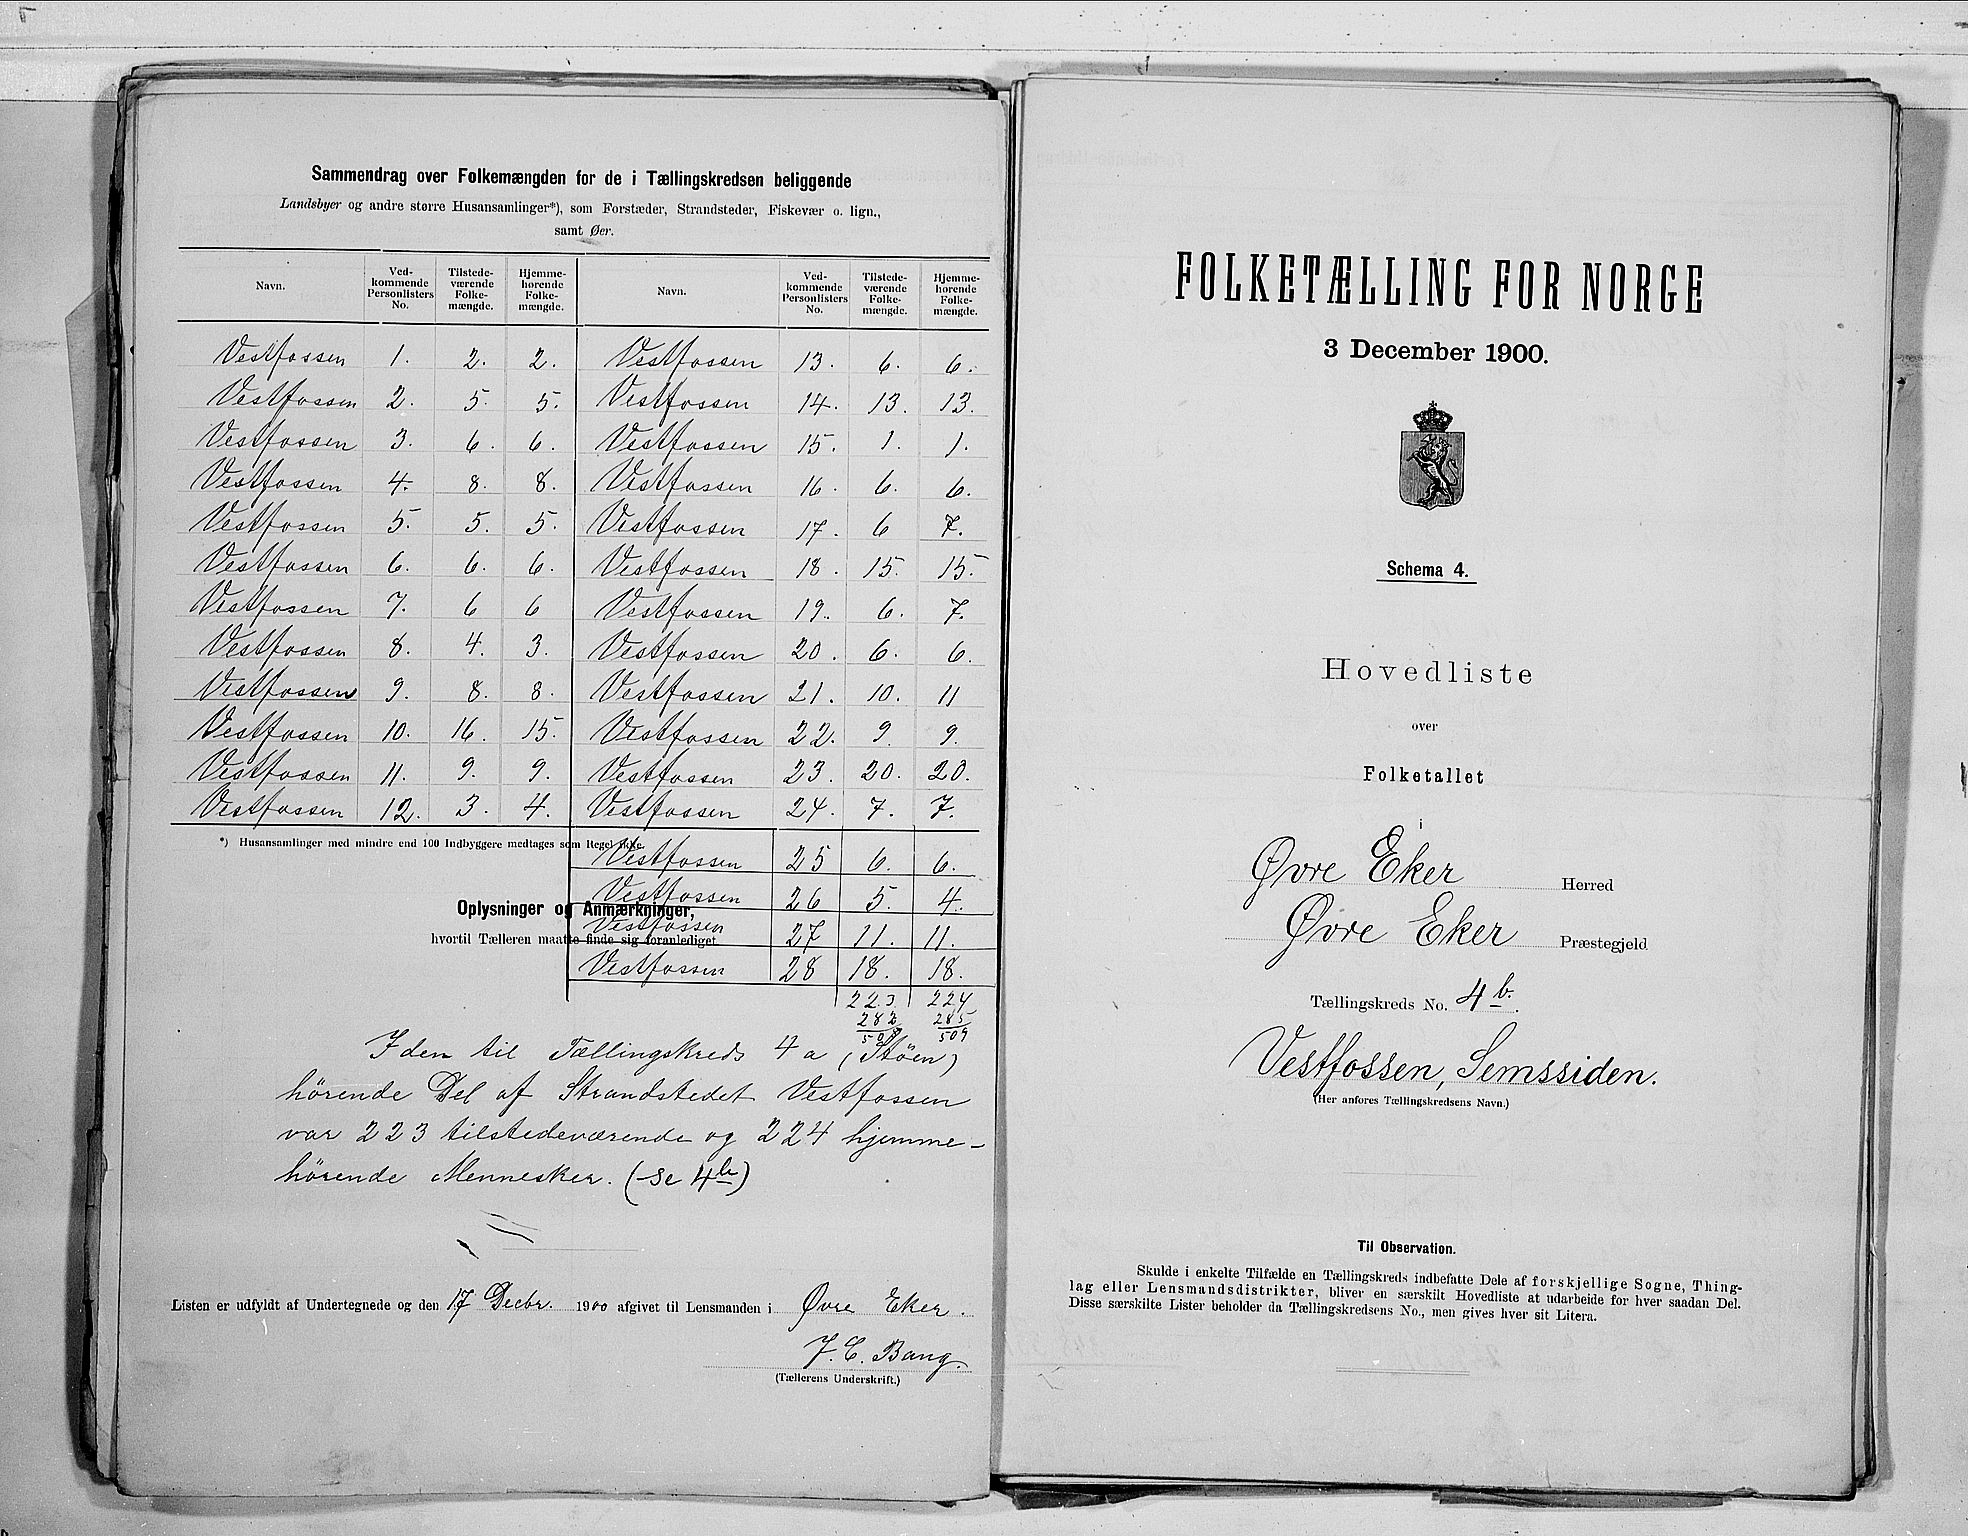 Sammendrag over Folkemængden for de i Tællingskredsen beliggende
Landsbyer og andre større Husansamlinger*), som Forstæder, Strandsteder, Fiskevær o. lign.,
samt Øer.
Navn. Ved-kommende Personlisters No. Tilstede-værende Folke-mængde. Hjemme-hørende Folke-mængde. Navn. Ved-kommende Personlisters No. Tilstede-værende Folke-mængde. Hjemme-hørende Folke-mængde.
Vestfossen 1. 2. 2. Vestfossen 13. 6. 6.
Vestfossen 2. 5. 5. Vestfossen 14. 13. 13.
Vestfossen 3. 6. 6. Vestfossen 15. 1. 1.
Vestfossen 4. 8. 8. Vestfossen 16. 6. 6.
Vestfossen 5. 5. 5. Vestfossen 17. 6 7.
Vestfossen 6. 6. 6. Vestfossen 18. 15. 15.
Vestfossen 7. 6 6 Vestfossen 19. 6. 7.
Vestfossen 8. 4. 3. Vestfossen 20. 6. 6.
Vestfossen 9. 8. 8. Vestfossen 21. 10. 11
Vestfossen 10. 16. 15. Vestfossen 22. 9. 9.
Vestfossen 11. 9. 9. Vestfossen 23. 20. 20.
Vestfossen 12. 3. 4. Vestfossen 24. 7. 7.
*) Husansamlinger med mindre end 100 Indbyggere medtages som Regel ikke.
Vestfossen 25 6. 6.
Vestfossen 26 5. 4.
Oplysninger og Anmærkninger,
Vestfossen 27 11. 11.
hvortil Tælleren maatte finde sig foranlediget
Vestfossen 28 18. 18.
223 224
283 285
509
I den til Tællingskreds 4 a (Støen)
hørende Del af Strandstedet Vestfossen
var 223 tilstedeværende og 224 hjemme-
hørende Mennesker. (se 4b)
Listen er udfyldt af Undertegnede og den 17 Decbr. 1900 afgivet til Lensmanden i Øvre Eker.
J. C. Bang.
(Tællerens Underskrift.)
FOLKETÆLLING FOR NORGE
3 December 1900.
Schema 4.
Hovedliste
over
Folketallet
i
Øvre Eker Herred
Øvre Eker Præstegjeld
Tællingskreds No. 4 b.
Vestfossen, Semssiden.
(Her anføres Tællingskredsens Navn.)
Til Observation.
Skulde i enkelte Tilfælde en Tællingskreds indbefatte Dele af forskjellige Sogne, Thing-
lag eller Lensmandsdistrikter, bliver en særskilt Hovedliste at udarbeide for hver saadan Del.
Disse særskilte Lister beholder da Tællingskredsens No., men gives hver sit Litera.